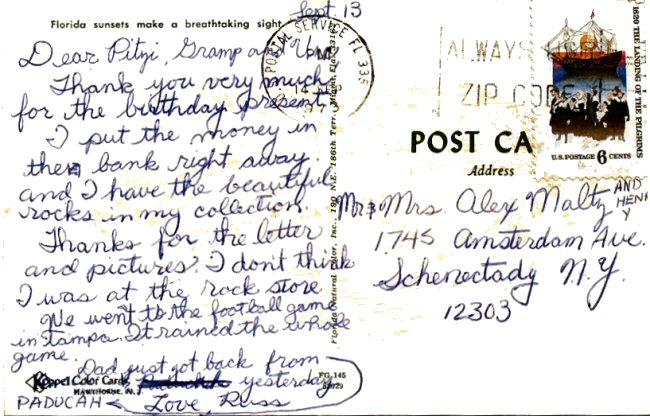 Sept 13
Florida sunsets make a breathtaking sight
Dear Pitzi, Gramp and
Thank you very much
for the birthday present.
I put the money in
the bank right away.
and I have the beautiful
rocks in my collection.
Thanks for the letter
and pictures. I don't think
I was at the rock store
We went to the football game
in Tampa. It rained the whole
game.
Dad just got back from
yesterday
PADUCAH
Love, Russ
Koppel Color Cards
HAWTHORNE, N.J.
FG-145
Florida Natural Color, Inc. 190 N.E. 186th Terr., Miami, Fla.
POSTAL SERVICE FL 335
PM
ALWAYS USE
ZIP CODE
1620 THE LANDING OF THE PILGRIMS
U.S. POSTAGE 6 CENTS
POST CA
Address
Mr & Mrs. Alex Maltz AND HENRY
1745 Amsterdam Ave.
Schenectady N.Y.
12303